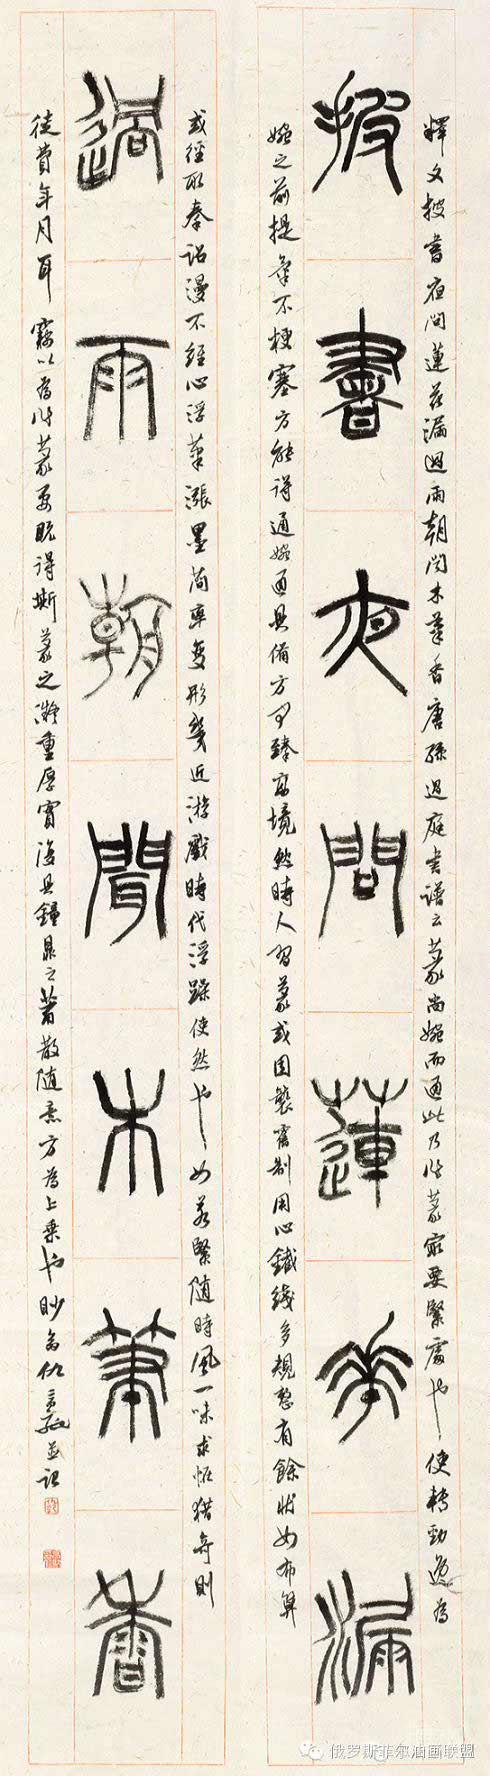 釋文披書夜問蓮花漏過雨朝聞木筆香唐孫過庭書譜云篆尚婉而通此乃作篆最要緊處也使轉勁逸為
披書夜問蓮華漏
婉之前提筆不梗塞方能得通婉通具備方可臻高境然時人習篆或因襲舊制用心鐵綫多規整有餘狀如布算
或徑取秦詔漫不經心浮筆漲墨簡率變形幾近游戲時代浮躁使然也如若緊隨時風一味求怪猎奇則
過雨朝聞木筆香
徒費年月耳竊以為作篆要既得斯篆之凝重厚實復具鐘鼎之蕭散隨意方為上乘也並記
俄罗斯菲尔油画联盟